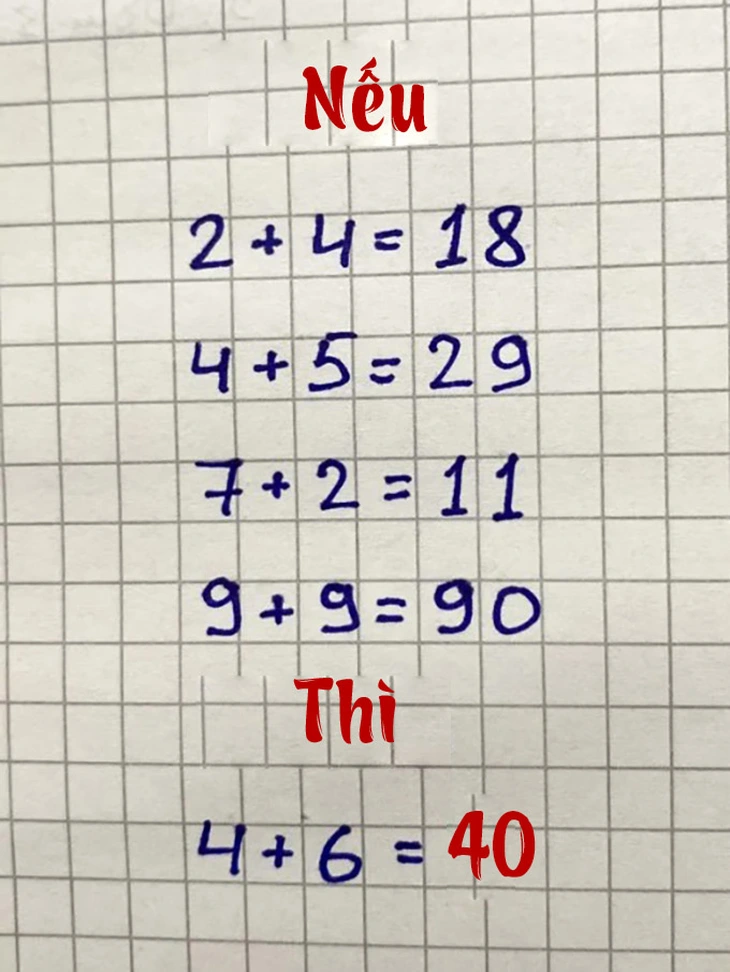 Nếu
2 + 4 = 18
4 + 5 = 29
7 + 2 = 11
9 + 9 = 90
Thì
4 + 6 = 40